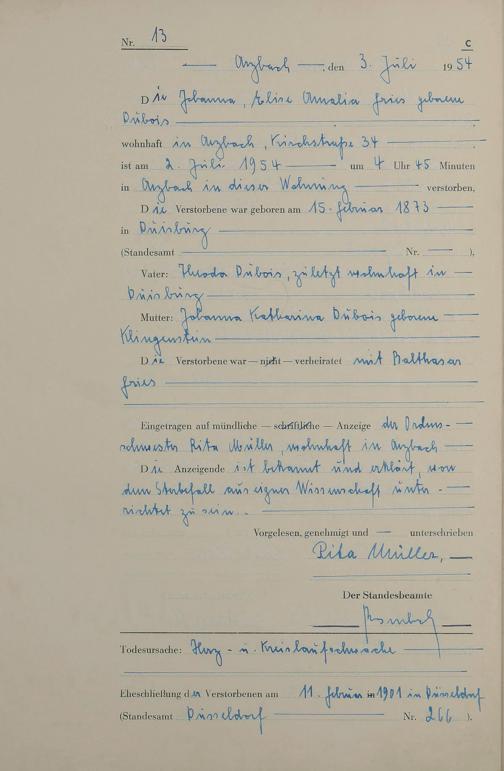 Nr. 13 C
Arzbach, den 3. Juli 1954
Die Johanna, Elise Amalia Fries geborene
Dubois
wohnhaft in Arzbach, Kirchstraße 34
ist am 2. Juli 1954 um 4 Uhr 45 Minuten
in Arzbach in dieser Wohnung verstorben,
Die Verstorbene war geboren am 15. Februar 1873
in Duisburg
(Standesamt — Nr. — ),
Vater: Theodor Dubois, zuletzt wohnhaft in
Duisburg
Mutter: Johanna Katharina Dubois geborene
Klingenstein
Die Verstorbene war — nicht — verheiratet mit Balthasar
Fries
Eingetragen auf mündliche — schriftliche — Anzeige der Ordens-
schwester Rita Müller, wohnhaft in Arzbach
Die Anzeigende ist bekannt und erklärt, von
dem Sterbefall aus eigner Wissenschaft unter-
richtet zu sein.
Vorgelesen, genehmigt und — unterschrieben
Rita Müller,
Der Standesbeamte
Todesursache: Herz- u. Kreislaufschwäche
Eheschließung der Verstorbenen am 11. Februar 1901 in Düsseldorf
(Standesamt Düsseldorf Nr. 266 ).